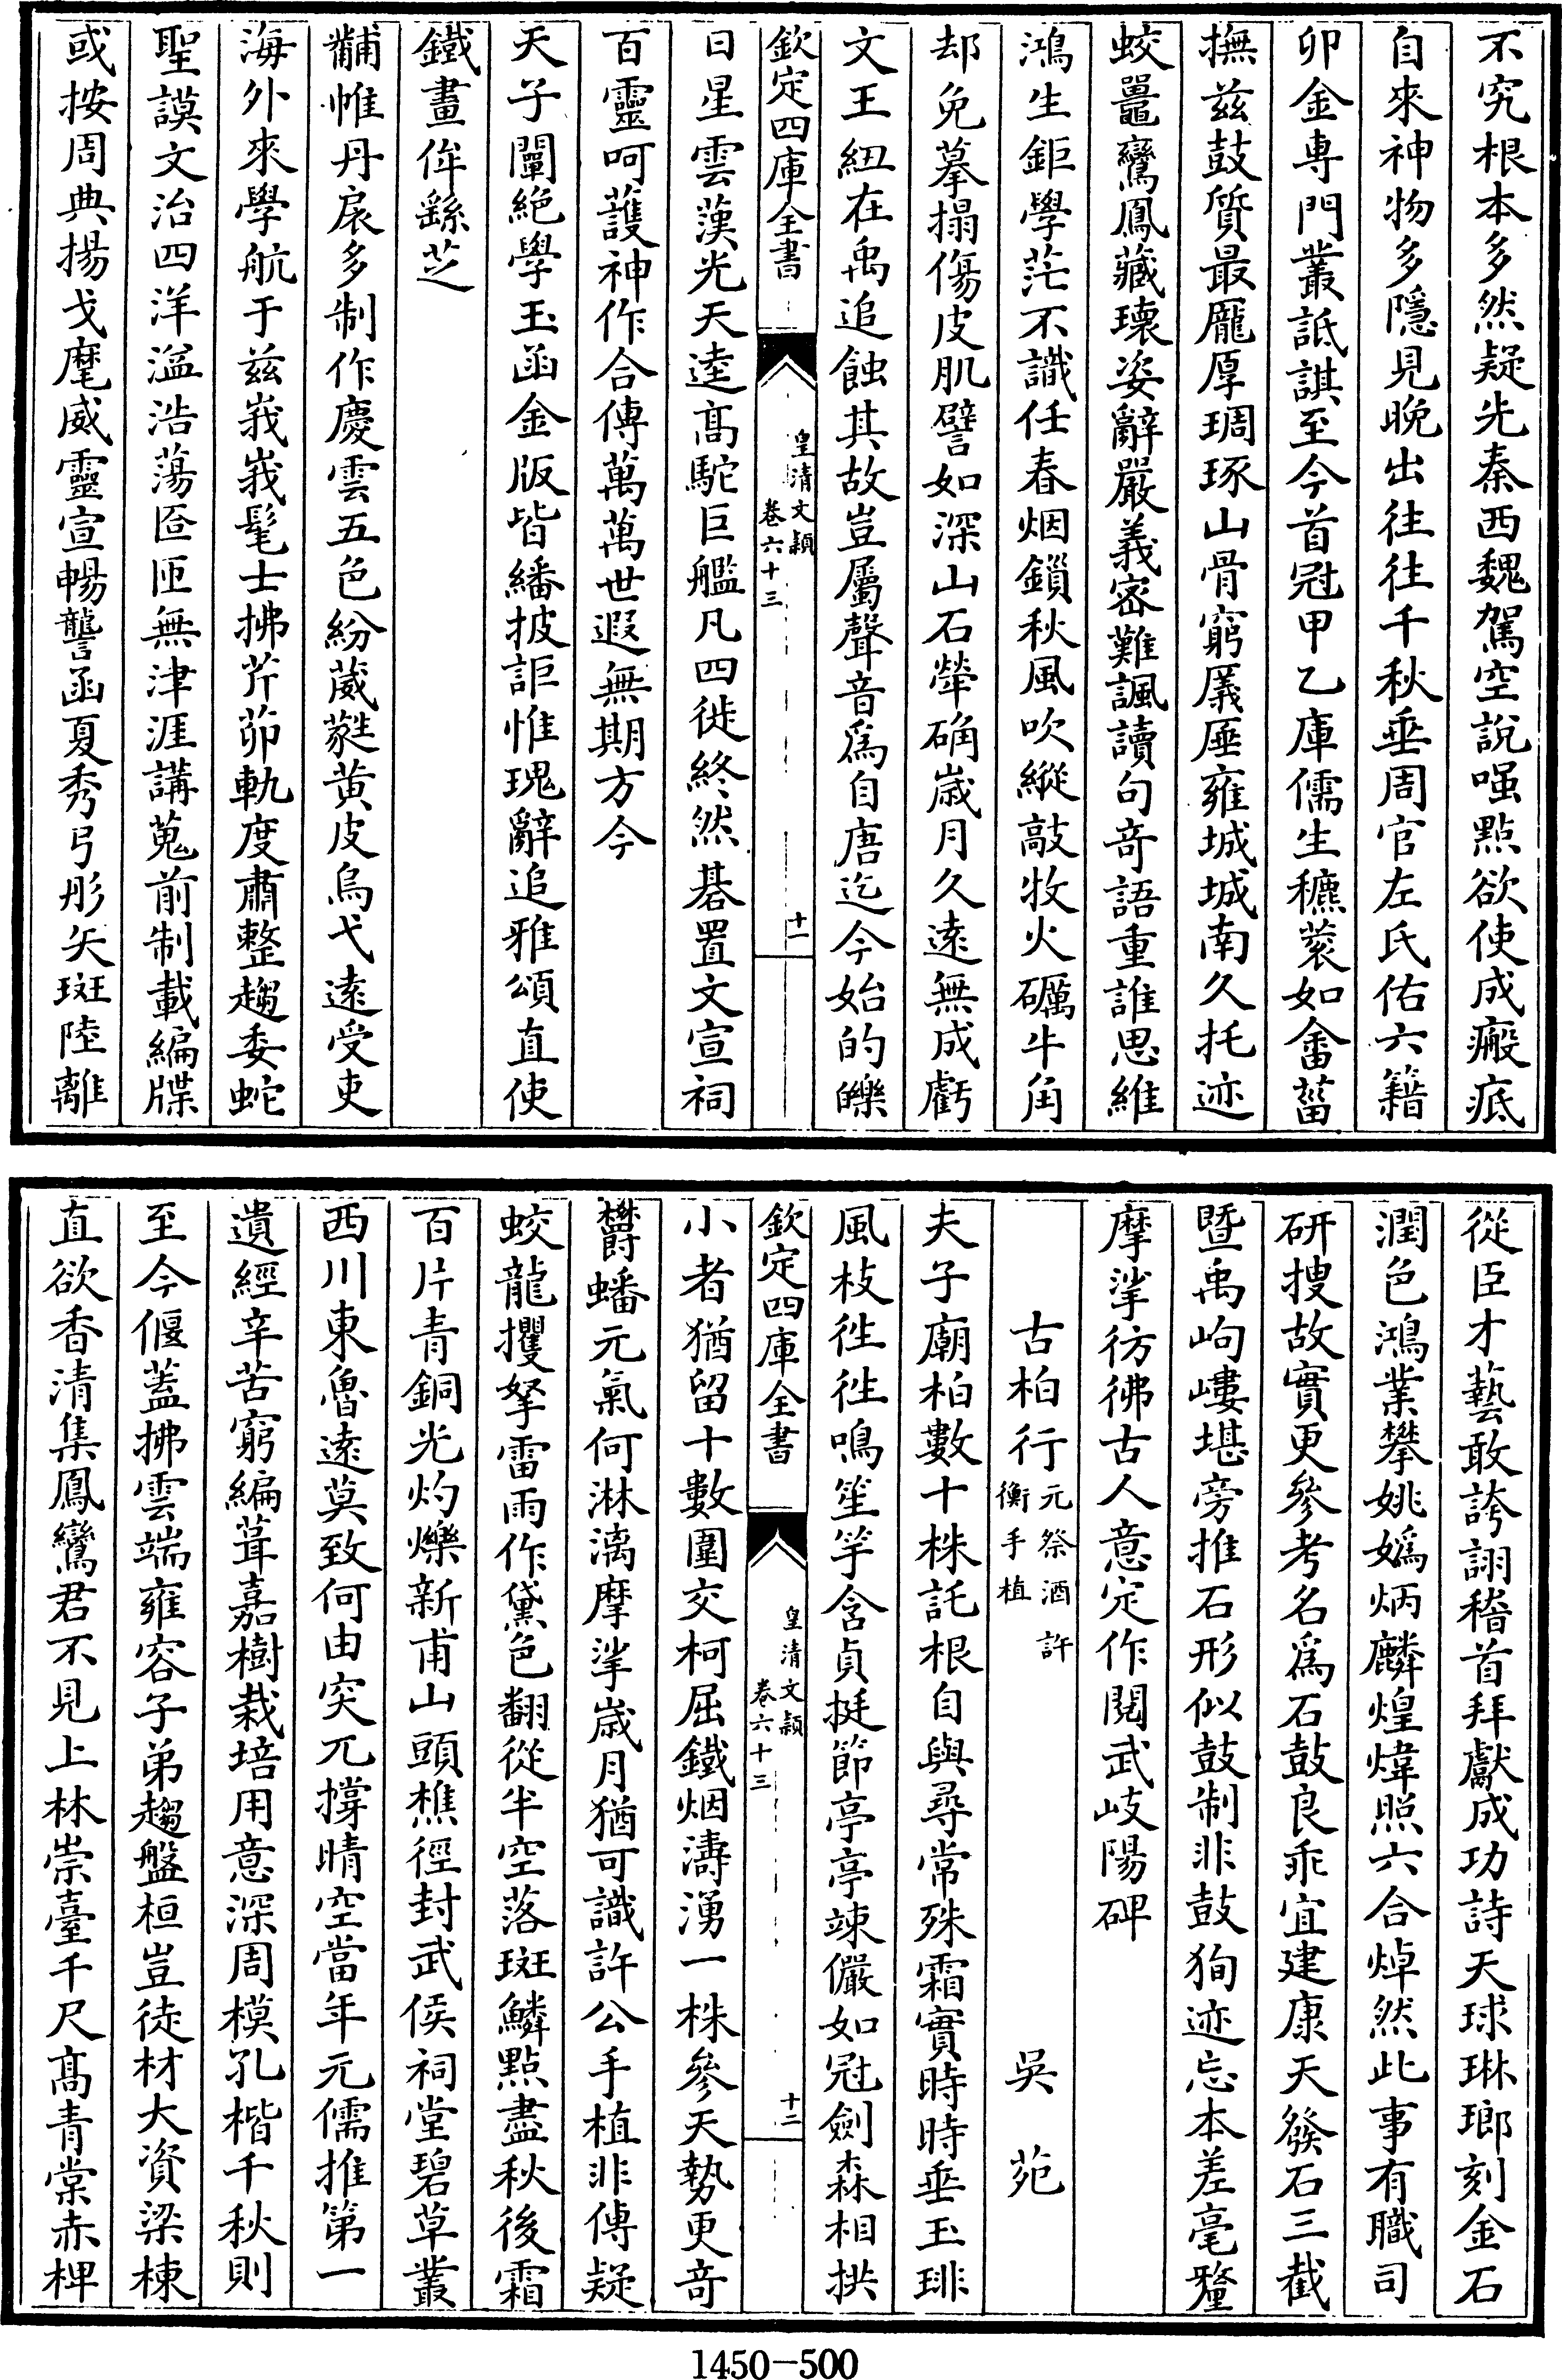 不究根本多然疑先秦西魏駕空說嗤點欲使成瘢疻
自來神物多隱見晚出往往千秋垂周官左氏佑六籍
卯金專門叢詆諆至今首冠甲乙庫儒生穮蔉如畬菑
撫兹鼓質最龎厚琱琢山骨窮㕒厜雍城城南久托迹
蛟鼉鸞鳳藏瓌姿辭嚴義密難諷讀句竒語重誰思維
鴻生鉅學茫不識任春烟鎻秋風吹縱敲牧火礪牛角
却免摹搨傷皮肌譬如深山石犖确歳月久逺無成虧
文王紐在禹追蝕其故豈屬聲音爲自唐迄今始的皪
欽定四庫全書
皇清文穎
卷六十三
十一
日星雲漢光天逵髙駝巨艦凡四徙終然碁置文宣祠
百靈呵護神作合傳萬萬世遐無期方今
天子闡絶學玉函金版皆繙披詎惟瑰辭追雅頌直使
鐵畫侔繇芝
黼帷丹扆多制作慶雲五色紛葳蕤黄皮烏弋逺受吏
海外來學航于兹峩峩髦士拂芹茆軌度肅整趨委蛇
聖謨文治四洋溢浩蕩匼匝無津涯講蒐前制載編牒
或按周典揚戈麾威靈宣暢讋函夏秀弓彤矢斑陸離
從臣才藝敢誇詡稽首拜獻成功詩天球琳瑯刻金石
潤色鴻業攀姚嬀炳麟煌煒照六合焯然此事有職司
研搜故實更參考名爲石鼓良乖宜建康天發石三截
暨禹岣嶁堪旁推石形似鼓制非鼓狥迹忘本差毫釐
摩挲彷彿古人意定作閱武岐陽碑
古柏行元祭酒許衡手植 吳苑
夫子廟柏數十株託根自與尋常殊霜實時時垂玉琲
風枝徃徃鳴笙竽含貞挺節亭亭竦儼如冠劍森相拱
欽定四庫全書
皇清文穎
卷六十三
十二
小者猶留十數圍交柯屈鐵烟濤湧一株參天勢更竒
欝蟠元氣何淋漓摩挲歳月猶可識許公手植非傳疑
蛟龍攫拏雷雨作黛色翻從半空落斑鱗點盡秋後霜
百片青銅光灼爍新甫山頭樵徑封武侯祠堂碧草叢
西川東魯逺莫致何由突兀撐晴空當年元儒推第一
遺經辛苦窮編葺嘉樹栽培用意深周模孔楷千秋則
至今偃蓋拂雲端雍容子弟趨盤桓豈徒材大資梁棟
直欲香清集鳳鸞君不見上林崇臺千尺髙青棠赤椑
1450—500